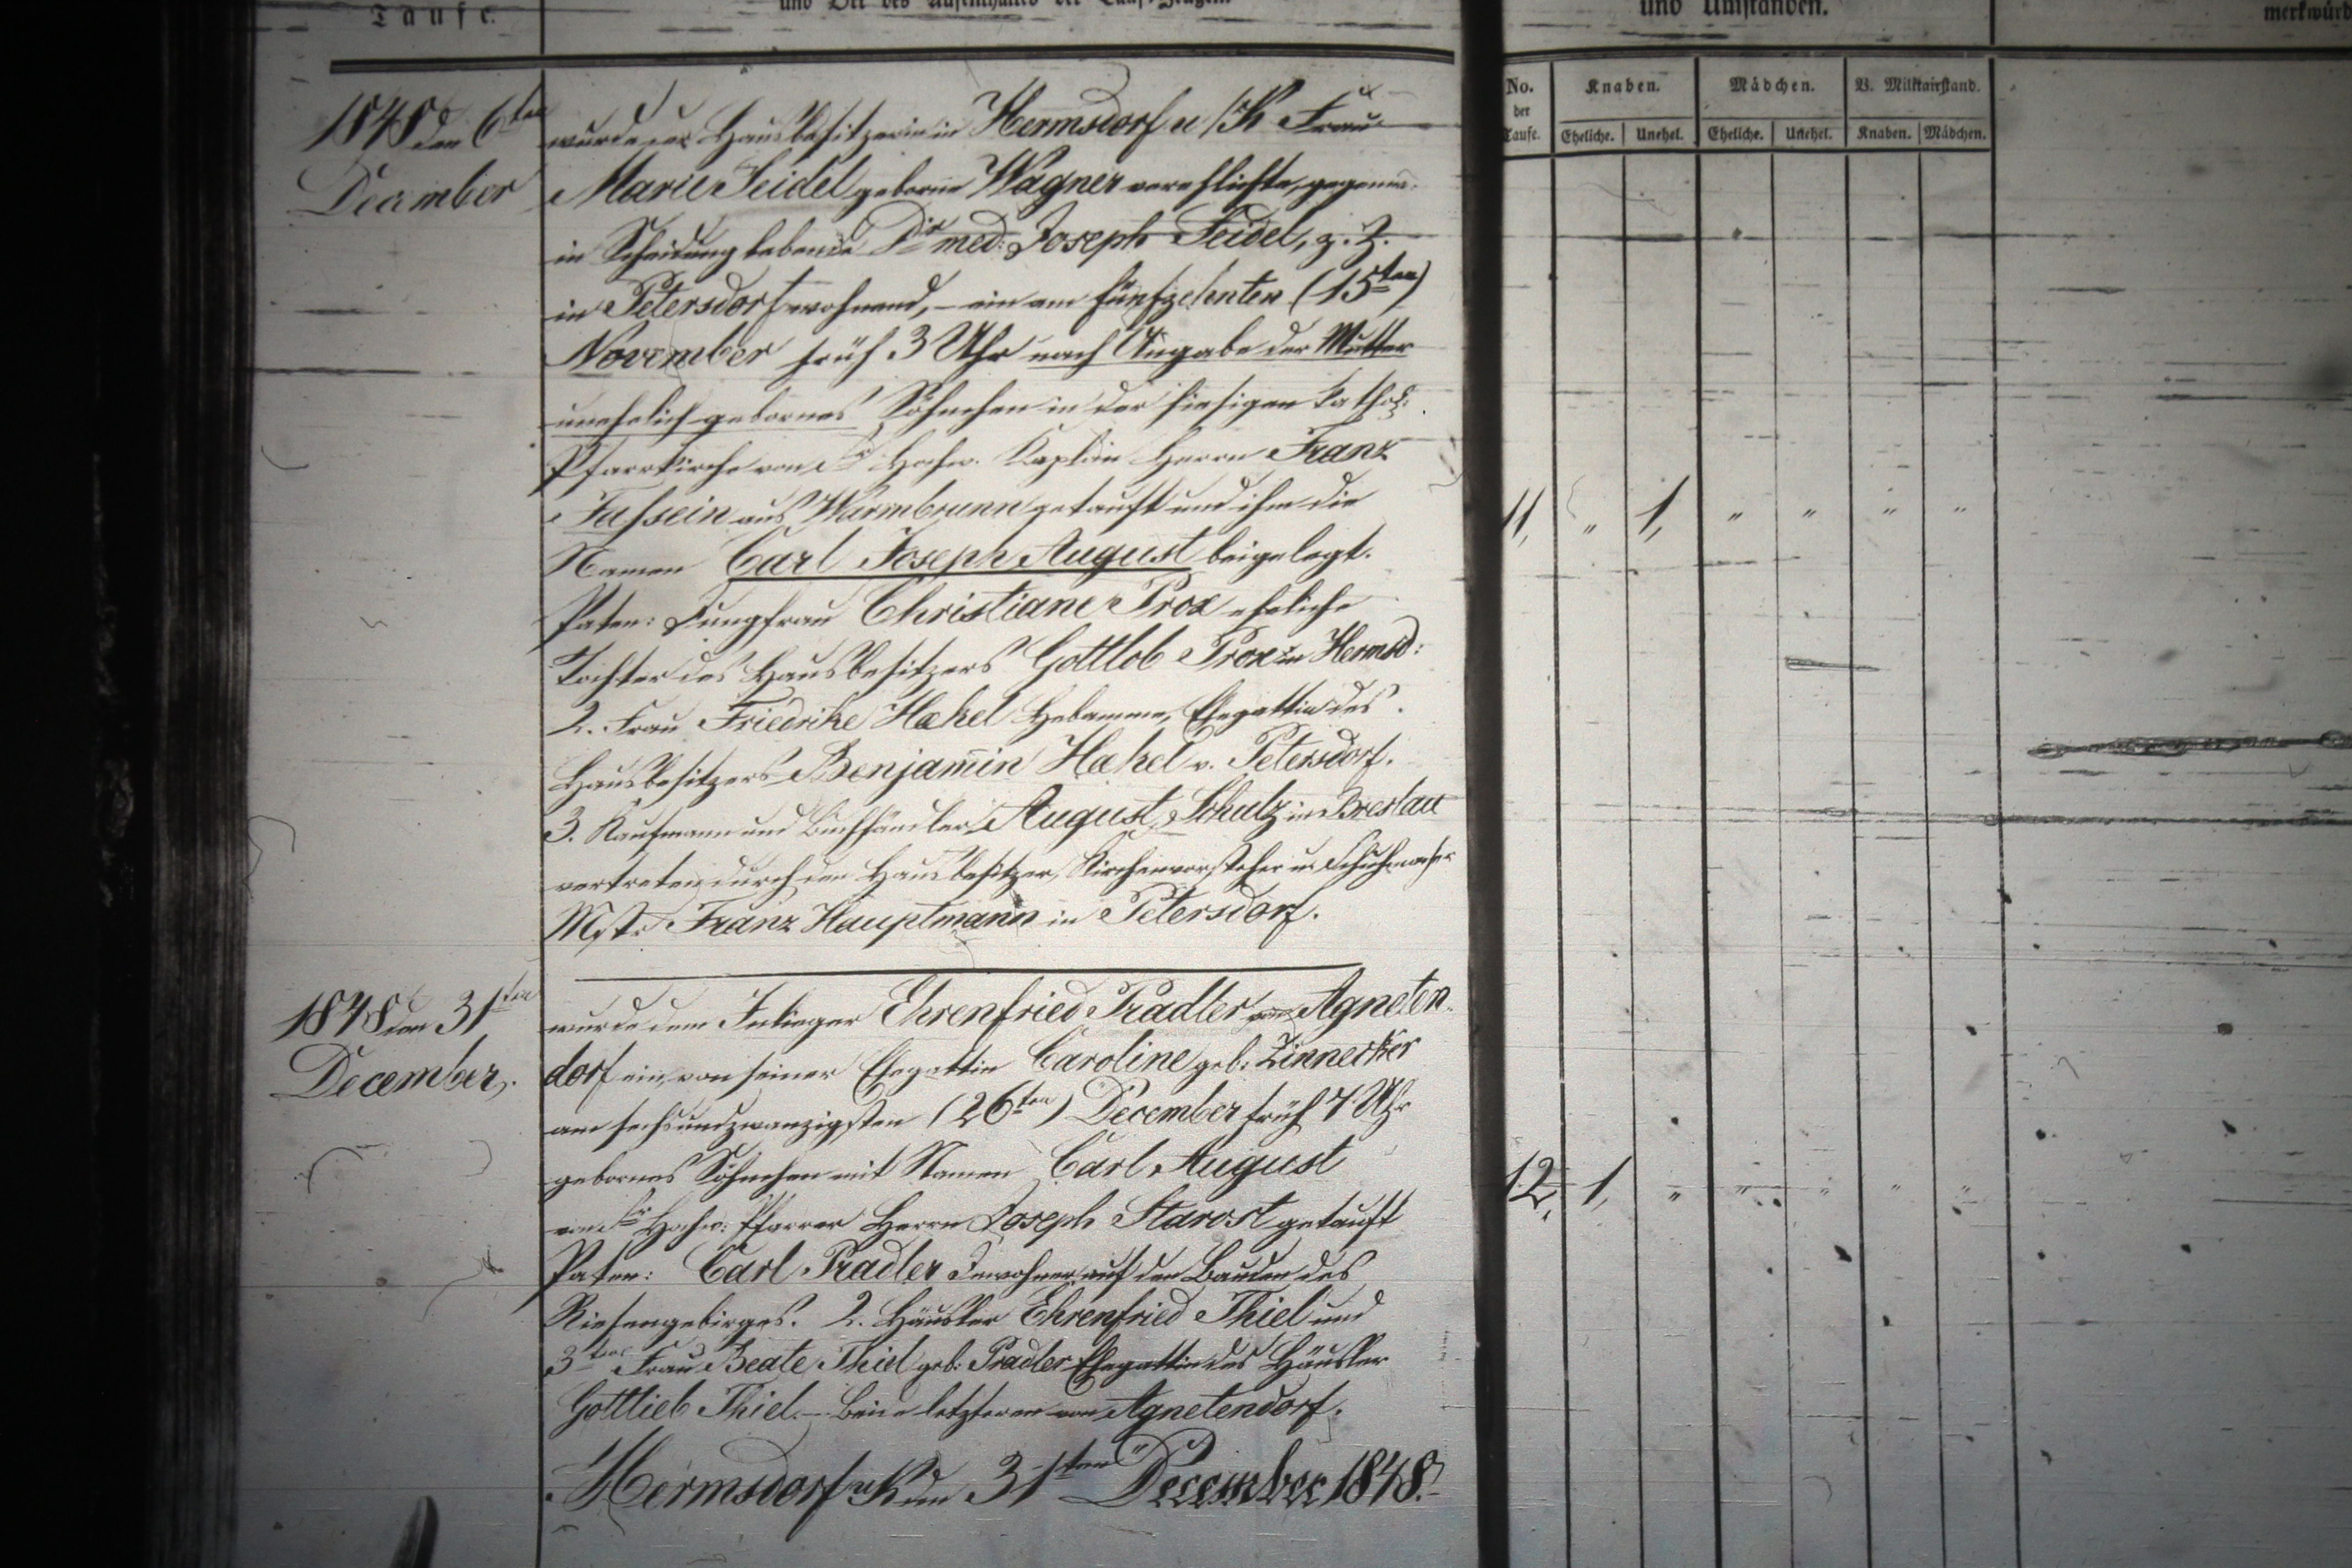 Taufe.
und Ort des Aufenthaltes der Tauf-Zeugen.
und Umständen.
merkwürd
No. der Taufe.
Knaben.
Mädchen.
B. Militairstand.
Eheliche. Unehel. Eheliche. Unehel. Knaben. Mädchen.
1848 den 6ten
December
wurde der Hausbesitzerin in Hermsdorf u/K Frau
Marie Seidel geborne Wagner verehlichte, gegenw.
in Scheidung lebende Dr med: Joseph Seidel, z. Z.
in Petersdorf wohnend, – ein am fünfzehnten (15ten)
November früh 3 Uhr nach Angabe der Mutter
unehelich gebornes Söhnchen in der hiesigen kathol:
Pfarrkirche von Sr Hochw. Kaplan Herrn Franz
aus Warmbrunn getauft und ihm die
Namen Carl Joseph August beigelegt.
Paten: Jungfrau Christiane Prox eheliche
Tochter des Hausbesitzers Gottlob Prox in Hermsd:
2. Frau Friedrike Hækel Hebamme, Ehegattin des
Hausbesitzers Benjamin Hækel v. Petersdorf.
3. Kaufmann und Buchhändler August Schulz in Breslau
vertreten durch den Hausbesitzer, Kirchenvorsteher u. Schuhmacher
Mstr. Franz Hauptmann in Petersdorf.
11, " 1, " " " "
1848 den 31ten
December,
wurde dem Inlieger Ehrenfried Pradler von Agneten-
dorf ein, von seiner Ehegattin Caroline geb: Zinnecker
am sechsundzwanzigsten (26ten) December früh 7 Uhr
gebornes Söhnchen mit Namen Carl August
von Sr Hochw: Pfarrer Herrn Joseph Starost getauft
Paten: Carl Pradler Inwohner auf den Bauden des
Riesengebirges. 2. Häusler Ehrenfried Thiel und
3tens Frau Beate Thiel geb: Pradler Ehegattin des Häusler
Gottlieb Thiel. – Beide letzteren von Agnetendorf.
12, 1, " " " " "
Hermsdorf u/K den 31ten December 1848.